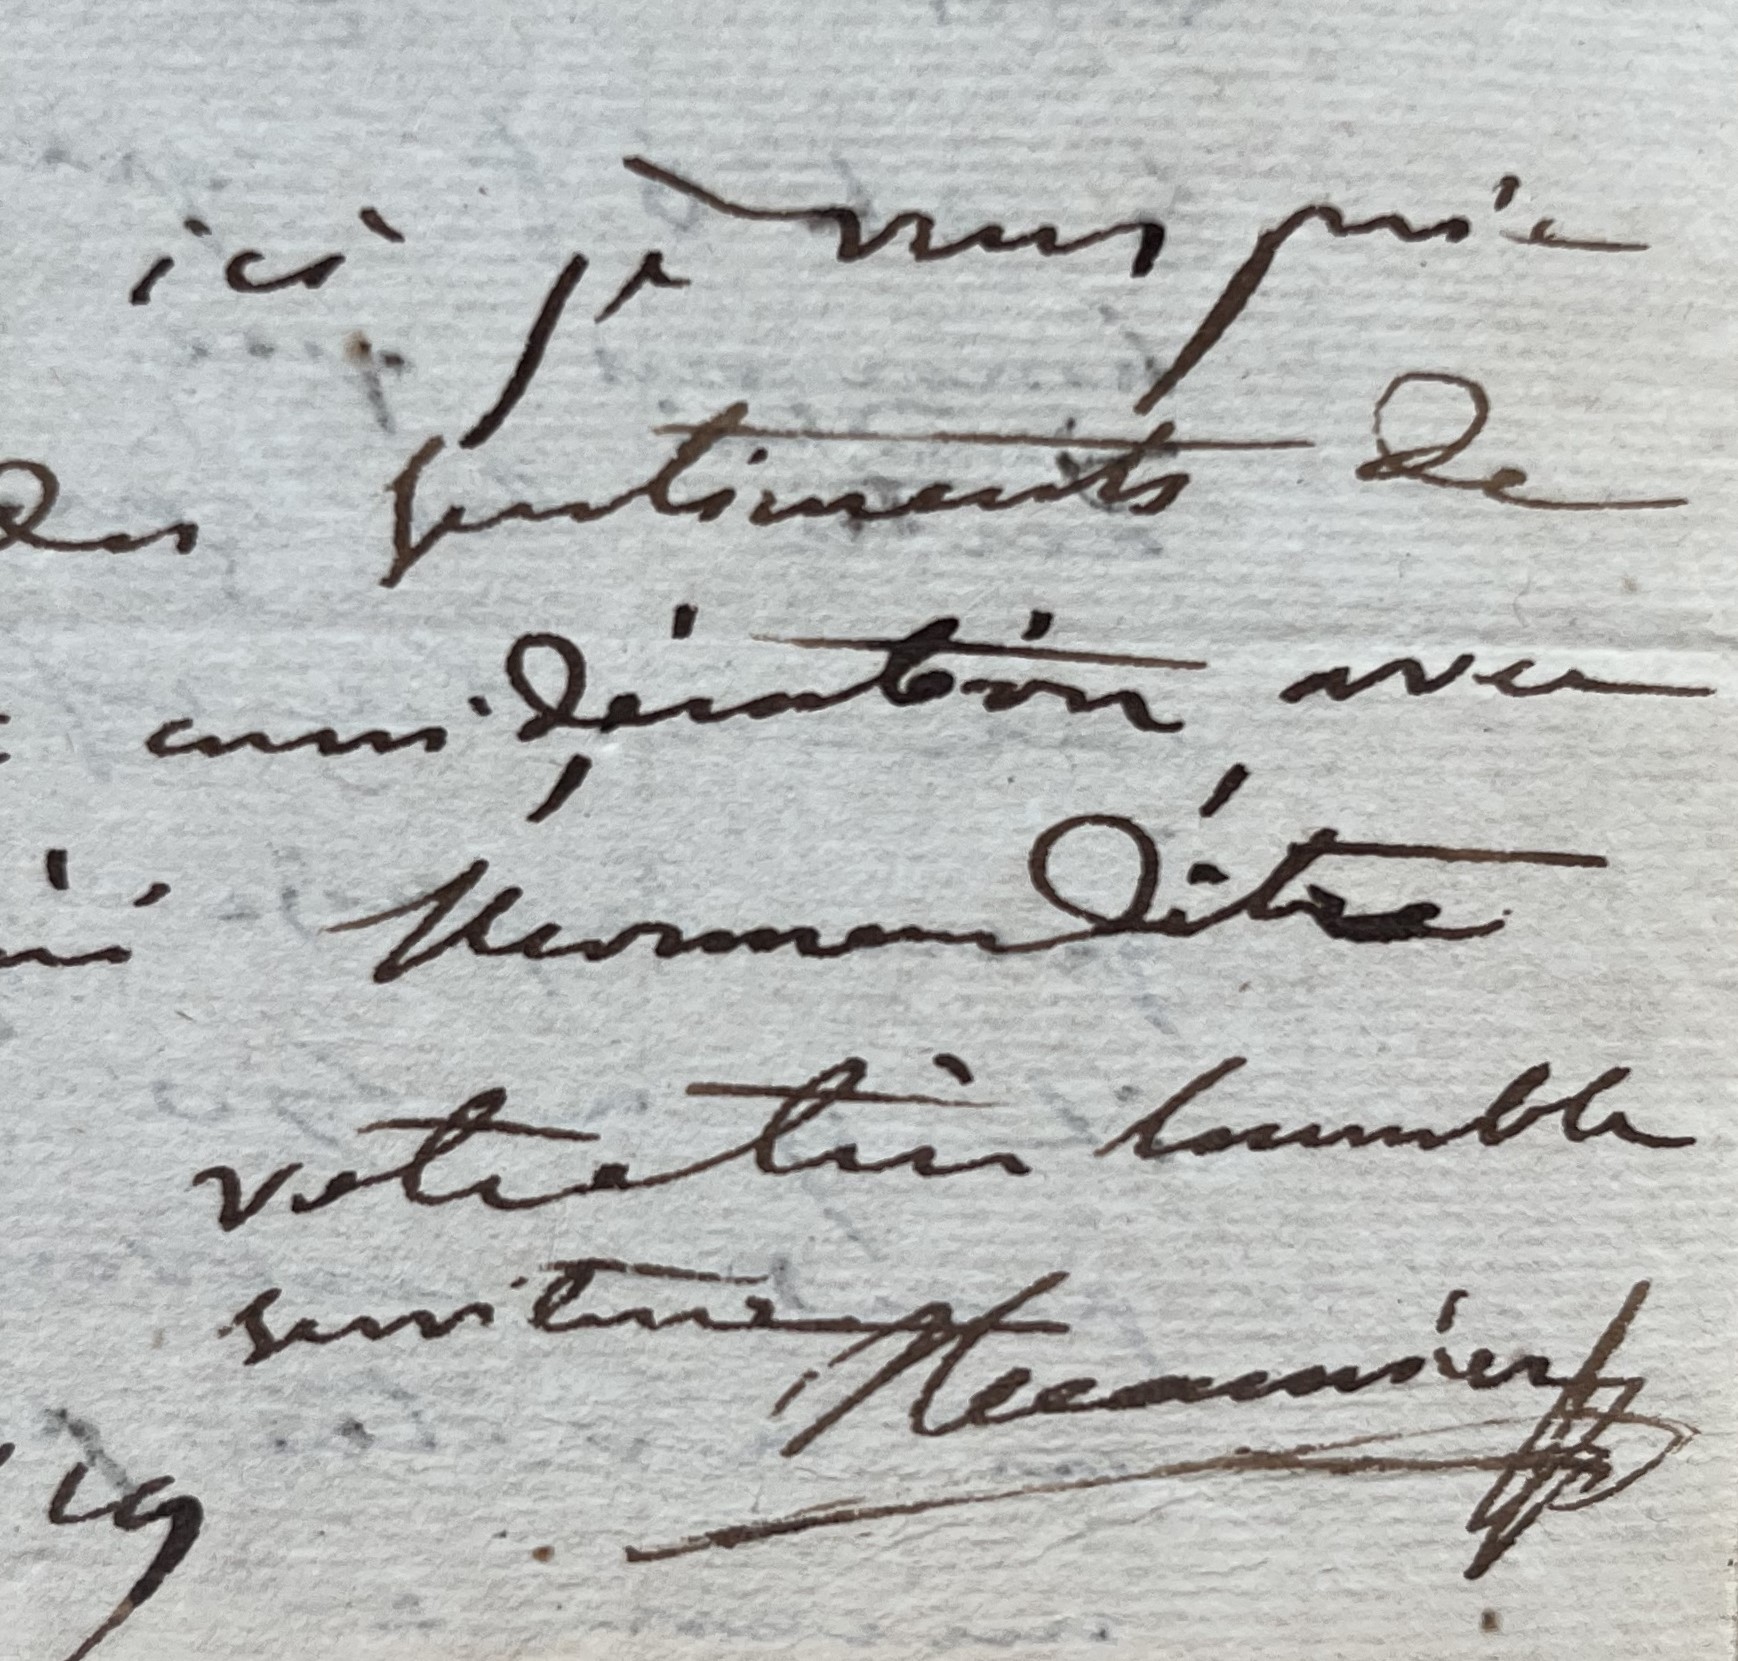 ici je vous prie
des sentiments de
consideration avec
l'honneur d'être
votre très humble
serviteur Meaunier